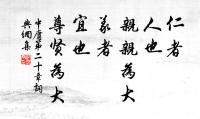 仁者
人也
親親為大
義者
宜也
尊賢為大
中庸第二十章詞